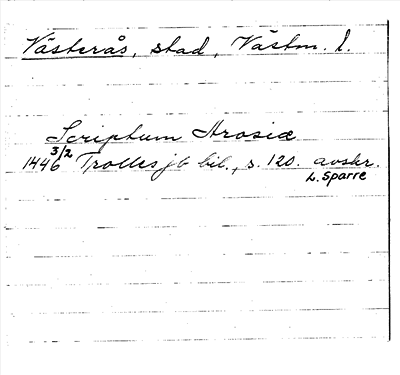 Västerås, stad, Västm. l.
Scriptum Arosiæ
1446 3/2 Trolles jb bil., s. 120. avskr.
L. Sparre